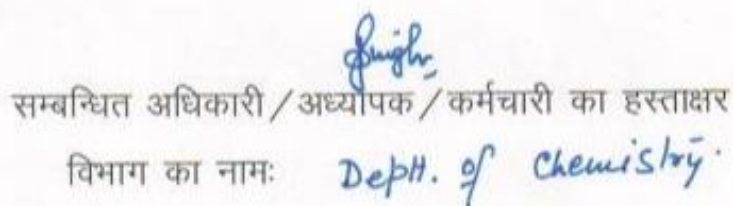 Singh
सम्बन्धित अधिकारी/अध्यापक/कर्मचारी का हस्ताक्षर
विभाग का नामः Deptt. of Chemistry.